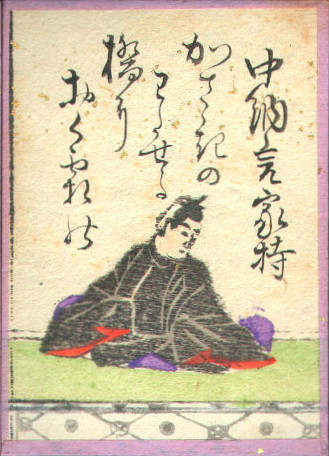 中納言家持
かさゝきの
わたせる
橋に
おく霜の